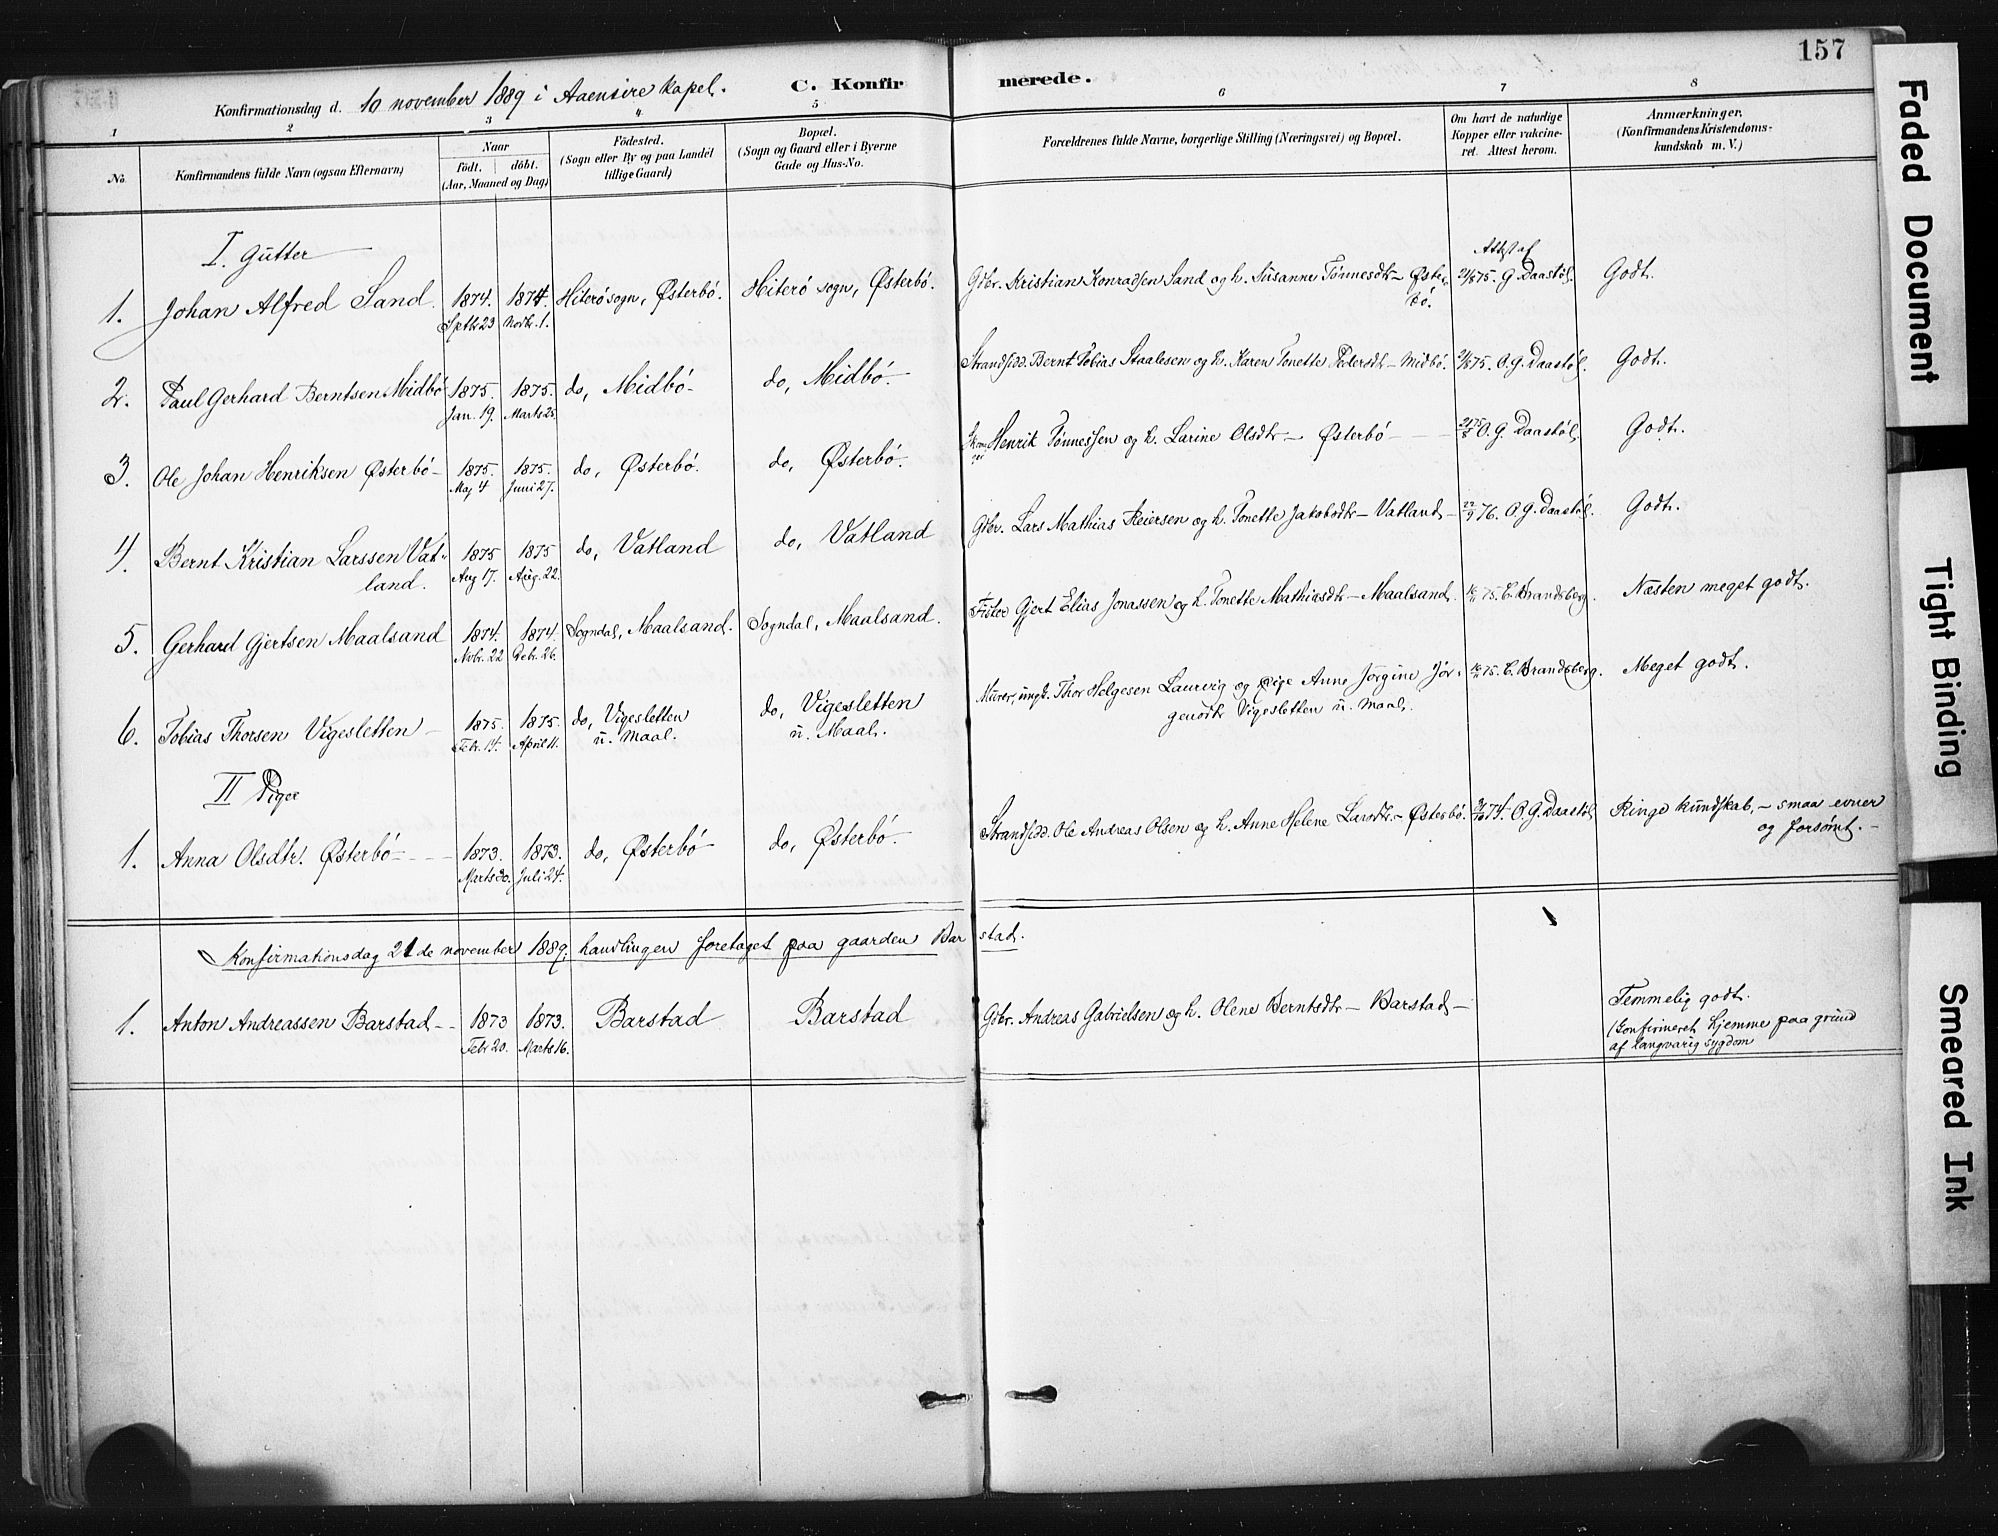 157
C. Konfirmerede.
Konfirmationsdag d. 10 november 1889 i Aaensire kapel.
1 2 3 4 5 6 7 8
No. Konfirmandens fulde Navn (ogsaa Efternavn) Naar født. døbt. (Aar, Maaned og Dag) Fødested. (Sogn eller By og paa Landet tillige Gaard) Bopæl. (Sogn og Gaard eller i Byerne Gade og Hus-No. Forældrenes fulde Navne, borgerlige Stilling (Næringsvei) og Bopæl. Om havt de naturlige Kopper eller vakcineret. Attest herom. Anmærkninger. (Konfirmandens Kristendomskundskab m. V.)
I. Gutter
Attest af
1. Johan Alfred Sand. 1874. Sptbr 23 1874. Novbr. 1. Hiterö sogn, Østerbö. Hiterö sogn, Østerbö. Gbr. Kristian Konradsen Sand og h. Susanne Tønnesdtr – Østerbö. 21/8 75. G. Daastöl. Godt.
2. Paul Gerhard Berntsen Midbö 1875. Jan. 19. 1875. Marts 25. do, Midbö – do, Midbö. – Strandsidd. Bernt Tobias Staalesen og h. Karen Tonette Pedersdtr – Midbö. 21/8 75. O. G. Daastöl. Godt.
3. Ole Johan Henriksen Østerbö – 1875. Maj 4 1875. Juni 27. do, Østerbö. do, Østerbö. Henrik Tønnessen og h. Larine Olsdtr – Østerbö – 21/8 75 O. G. Daastöl. Godt.
4. Bernt Kristian Larssen Vatland. 1875 Aug 17. 1875 Aug. 22. do, Vatland do, Vatland Gbr. Lars Mathias Reiersen og h. Tonette Jakobsdtr – Vatland – 22/9 76. O. G. Daastöl. Godt.
5. Gerhard Gjertsen Maalsand 1874. Nvbr. 22 1874 Debr. 26. Sogndal, Maalsand. Sogndal, Maalsand. Fisker Gjert Elias Jonassen og h. Tonette Mathiasdtr – Maalsand. 75. C. Brandsberg. Næsten meget godt.
6. Tobias Thorsen Vigesletten – 1875. Febr. 14. 1875. April 11. do, Vigesletten u. Maal. do, Vigesletten u. Maal. Murer, ungk. Thor Helgesen Laurvig og pige Anne Jörgine Jörgensdtr Vigesletten u. Maal. 75. C. Brandsberg. Meget godt.
II Piger
1. Anna Olsdtr. Østerbö – – – 1873. Marts 30. 1873. Juli 24. do, Østerbö – do, Østerbö. – Strandsidd. Ole Andreas Olsen og h. Anne Helene Larsdtr – Østerbö. 74. O. G. Daastöl Ringe kundskab, – smaa evner og forsømt. –
Konfirmationsdag 21de november 1889; handlingen foretaget paa gaarden Barstad.
1. Anton Andreassen Barstad – – 1873 Febr 20. 1873. Marts 16. Barstad Barstad Gbr. Andreas Gabrielsen og h. Olene Berntsdtr – Barstad – Temmelig godt. (Konfirmeret hjemme paa grund af langvarig sygdom
Faded Document
Tight Binding
Smeared Ink